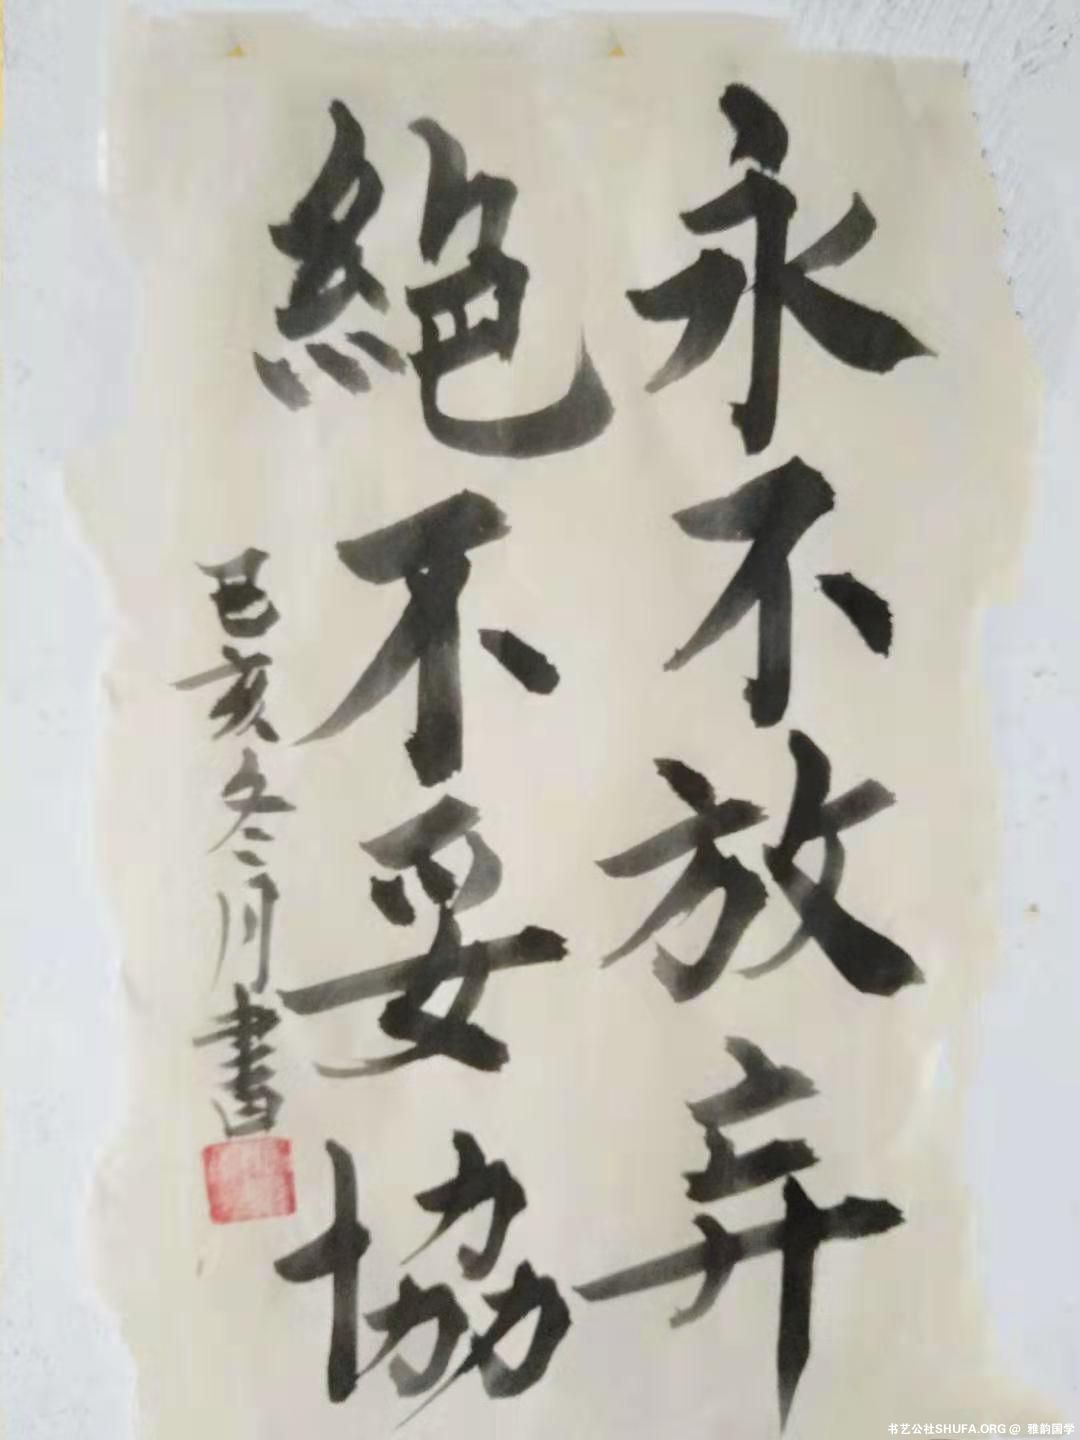 永不放弃
絕不妥協
己亥冬月書
书艺公社SHUFA.ORG @ 雅韵国学